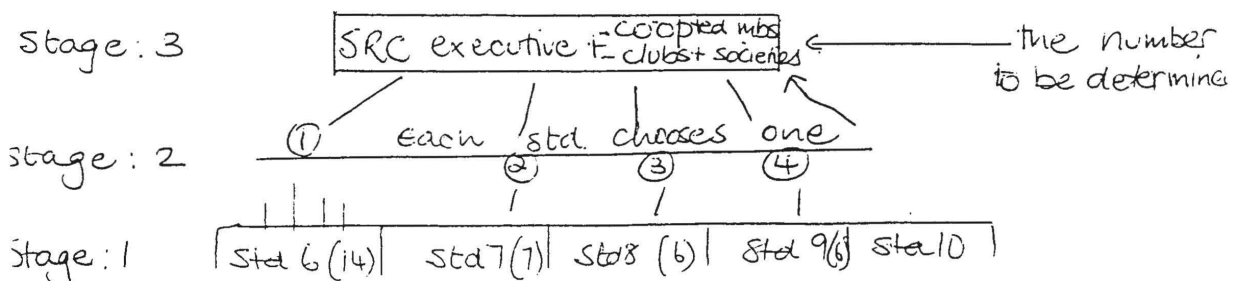 Stage: 3
SRC executive + - coopted mbs
- clubs + societies
the number
to be determine
Stage: 2
① Each std. chooses one
② ③ ④
Stage: 1
Std 6 (14) Std 7 (7) Std 8 (6) Std 9 (6) Std 10